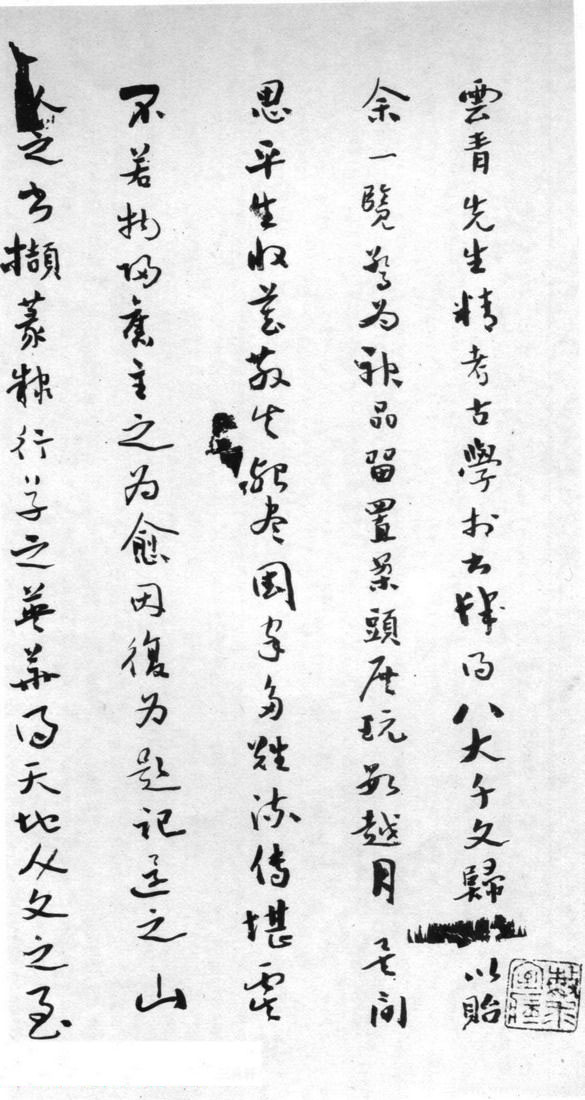 雲青先生精考古學於書肆得八大千文歸以貽
余一覽驚為神品留置案頭展玩數越月間
思平生收藏散失殆盡國家多難流傳堪虞
不若物歸舊主之為愈因復為題記還之山
人之書擷篆隸行草之英華得天地人文之至